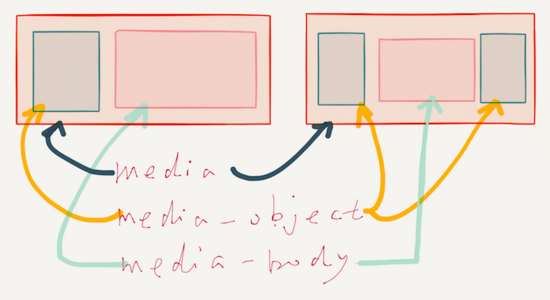 media
media-object
media-body